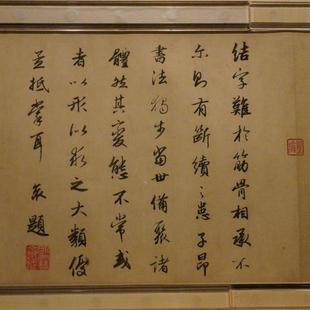 結字難於筋骨相承不
尒則有斷續之患子昂
書法獨步當世備聚諸
體然其變態不常或
者以形似求之大類優
孟抵掌耳 袠題